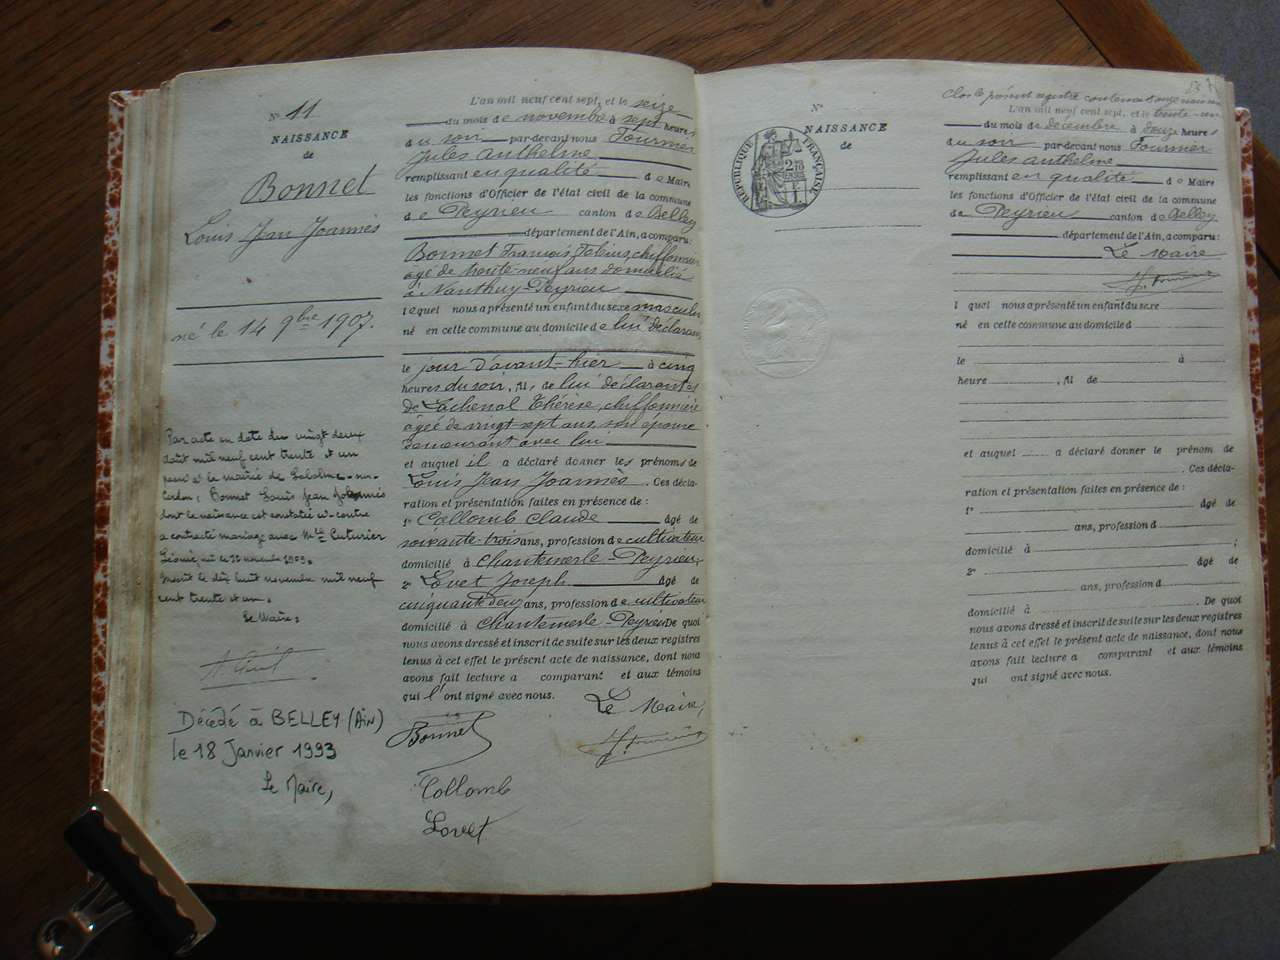 N° 11
NAISSANCE
de
Bonnet
Louis Jean Joannès
né le 14 9bre 1907.
Par acte en date du vingt deux
août mil neuf cent trente et un
passé à la mairie de
Cerdon, Bonnet Louis Jean Joannès
dont la naissance est constatée ci-contre
a contracté mariage avec Mlle Cuturier
le dix huit novembre mil neuf
cent trente et un.
Le Maire,
Décédé à BELLEY (AIN)
le 18 Janvier 1993
Le Maire,
L'an mil neuf cent sept, et le seize
du mois de novembre à sept heures
du soir par-devant nous Fournier
Jules Anthelme
remplissant en qualité de Maire
les fonctions d'Officier de l'état civil de la commune
de Peyrieu canton de Belley
département de l'Ain, a comparu :
Bonnet François chiffonnier
âgé de trente-neuf ans domicilié
à Nanthuy-Peyrieu
lequel nous a présenté un enfant du sexe masculin
né en cette commune au domicile de lui déclarant
le jour d'avant-hier à cinq
heures du soir, fils de lui déclarant et
de Lachenal Thérèse, chiffonnière
âgée de vingt-sept ans, son épouse
demeurant avec lui
et auquel il a déclaré donner les prénoms de
Louis Jean Joannès. Ces décla-
ration et présentation faites en présence de :
1° Collomb Claude âgé de
soixante-trois ans, profession de cultivateur
domicilié à Chantemerle-Peyrieu;
2° Lovet Joseph âgé de
cinquante deux ans, profession de cultivateur
domicilié à Chantemerle-Peyrieu De quoi
nous avons dressé et inscrit de suite sur les deux registres
tenus à cet effet le présent acte de naissance, dont nous
avons fait lecture a comparant et aux témoins
qui l'ont signé avec nous.
Le Maire,
Bonnet
J. Fournier
Collomb
Lovet
N°
NAISSANCE
de
RÉPUBLIQUE FRANÇAISE
Clos le présent registre contenant onze naissances
L'an mil neuf cent sept, et le trente-un
du mois de décembre à douze heures
du soir par-devant nous Fournier
Jules Anthelme
remplissant en qualité de Maire
les fonctions d'Officier de l'état civil de la commune
de Peyrieu canton de Belley
département de l'Ain, a comparu :
Le Maire
J. Fournier
l quel nous a présenté un enfant du sexe
né en cette commune au domicile d
le à
heure , fil de
et auquel a déclaré donner le prénom de
. Ces décla-
ration et présentation faites en présence de :
1° âgé de
ans, profession d
domicilié à ;
2° âgé de
ans, profession d
domicilié à . De quoi
nous avons dressé et inscrit de suite sur les deux registres
tenus à cet effet le présent acte de naissance, dont nous
avons fait lecture a comparant et aux témoins
qui ont signé avec nous.